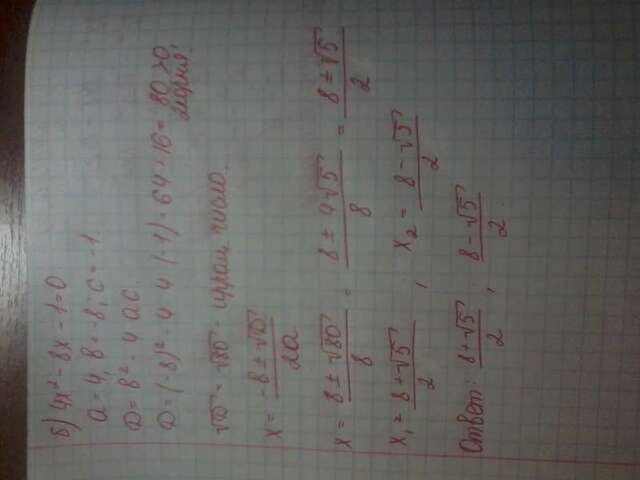 б) 4x² - 8x - 1 = 0
a = 4, в = -8; c = -1.
D = в² - 4ac.
D = (-8)² - 4·4·(-1) = 64 + 16 = 80 > 0,
2 корня.
√D = √80 - иррац. число.
x = -в ± √D / 2a
x = 8 ± √80 / 8 = 8 ± 4√5 / 8 = 8 ± √5 / 2
x₁ = 8 + √5 / 2, x₂ = 8 - √5 / 2
Ответ: 8 + √5 / 2, 8 - √5 / 2